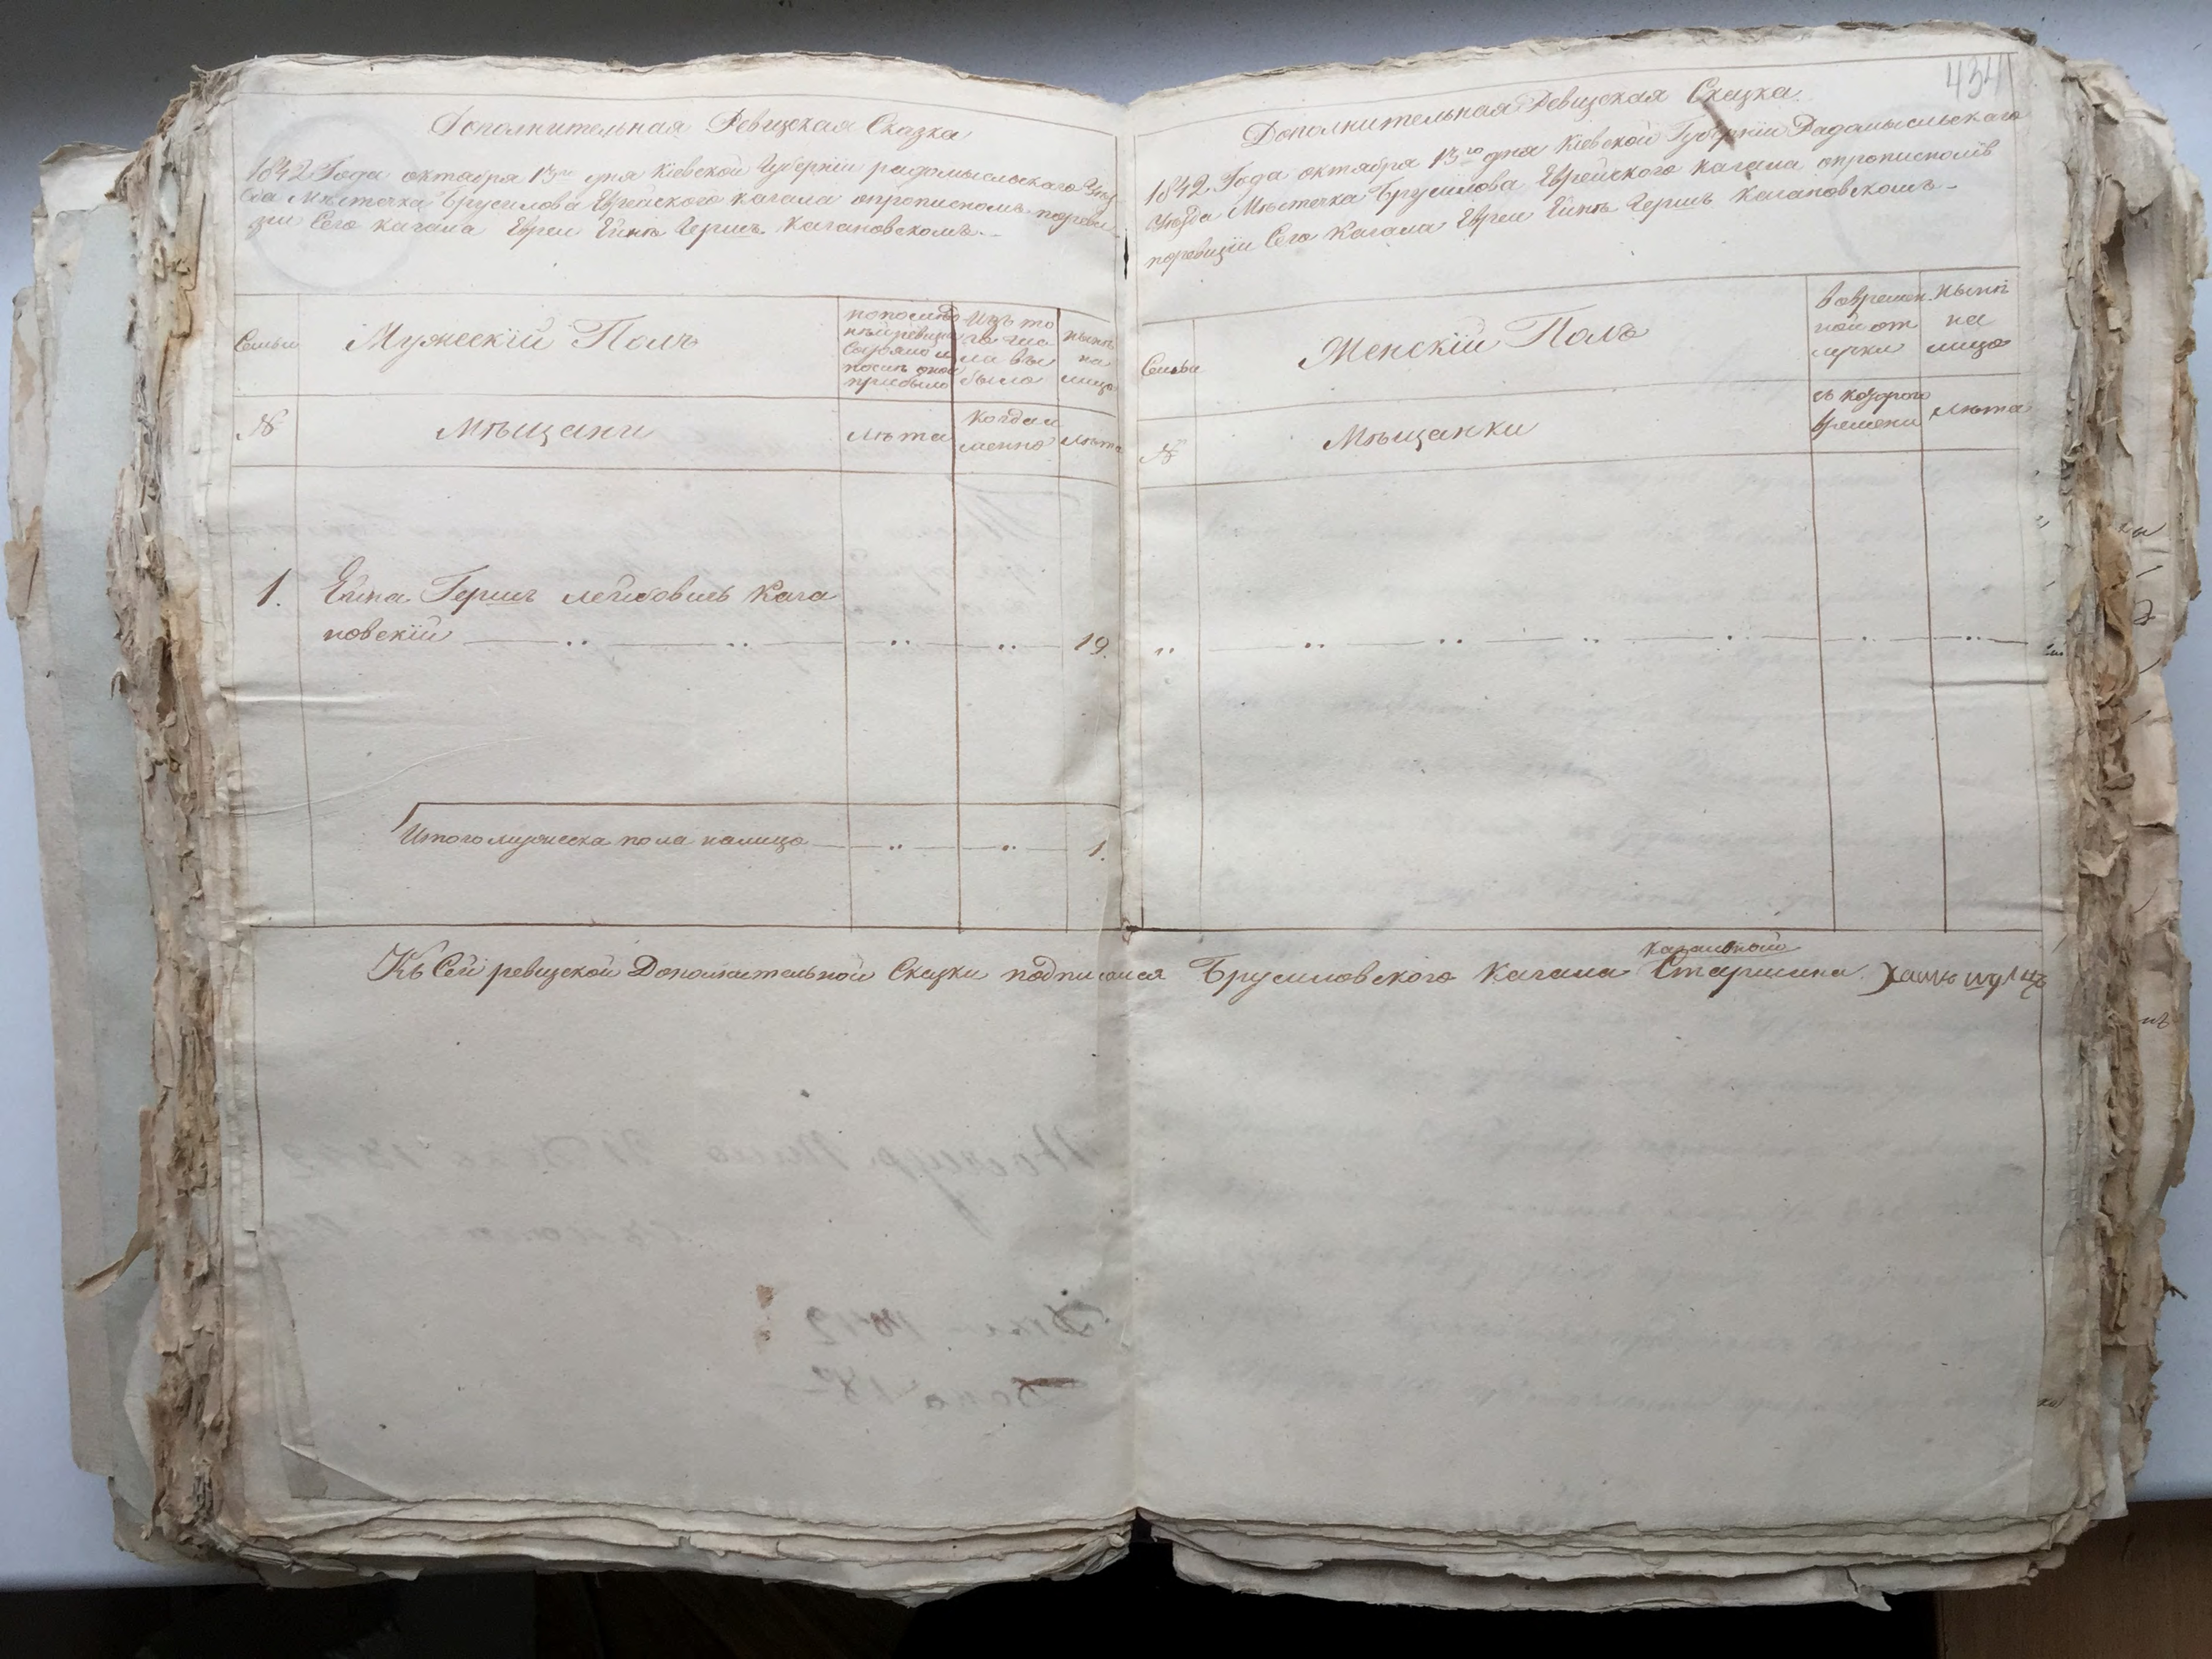 Дополнительная Ревизская Сказка
1842 Года октября 13го дня Кіевской Губерніи радомысльскаго Уез
да Мѣстечка Брусилова Еврейского кагала опрописномъ пореви
зіи Сего кагала Евреи Ейнѣ Гершъ Кагановскомъ.
Семьи
Мужескій Полъ
попослѣд
нѣй ревизіи
Состояло и
послѣ оной
прибыло
Изъ то
го чис
ла вы
было
нынѣ
на
лицо
№
Мѣщани
Лѣта
когда и
менно
Лѣта
1. Ейна Гершъ Лейбовичъ Кага
новскій 19.
Итого мужеска пола налицо 1.
434
Дополнительная Ревизская Сказка
1842 Года октября 13го дня Кіевской Губерніи Радомысльскаго
Уѣзда Мѣстечка Брусилова Еврейского кагала опрописномъ
поревизіи Сего Кагала Евреи Ейнѣ Гершъ Кагановскомъ.
Семьи
Женскій Полъ
вовремен
ной от
лучки
нынѣ
на
лицо
№
Мѣщанки
съ которого
времени
Лѣта
Къ Сей ревизской Дополнительной Сказки подписался Брусиловского Кагала Старшина
кагальный